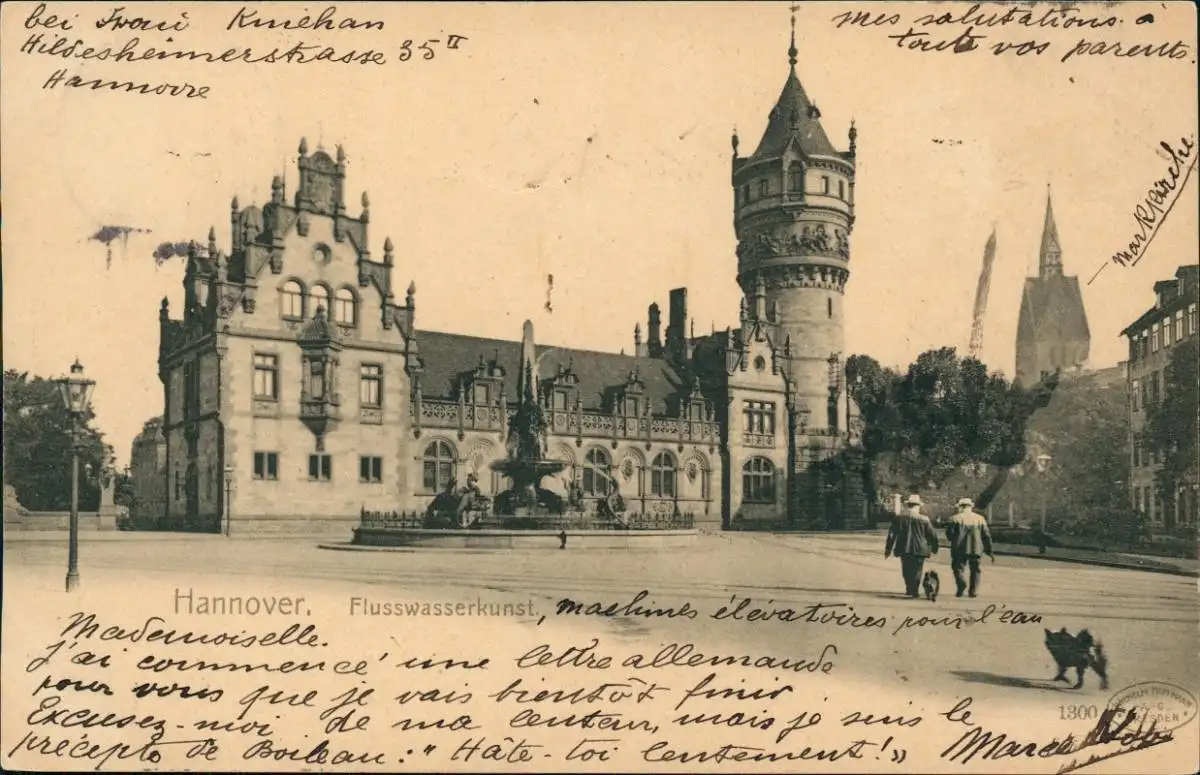 bei Frau Kniehan
Hildesheimerstrasse 35 II
Hannovre
mes salutations à
toute vos parents.
Marktkirche
Hannover. Flusswasserkunst., machines élévatoires pour l'eau
Mademoiselle.
J'ai commencé une lettre allemande
pour vous que je vais bientôt finir
Excusez-moi de ma lenteur, mais je suis le
précepte de Boileau: "Hâte-toi lentement!"
Marcel
1300
A.-G.
DRESDEN